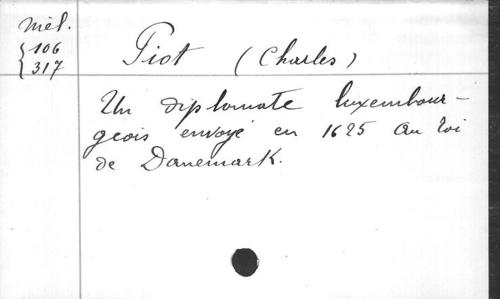 Mél.
{106
{317
Piot (Charles)
Un diplomate luxembour-
geois envoyé en 1625 au roi
de Danemark.